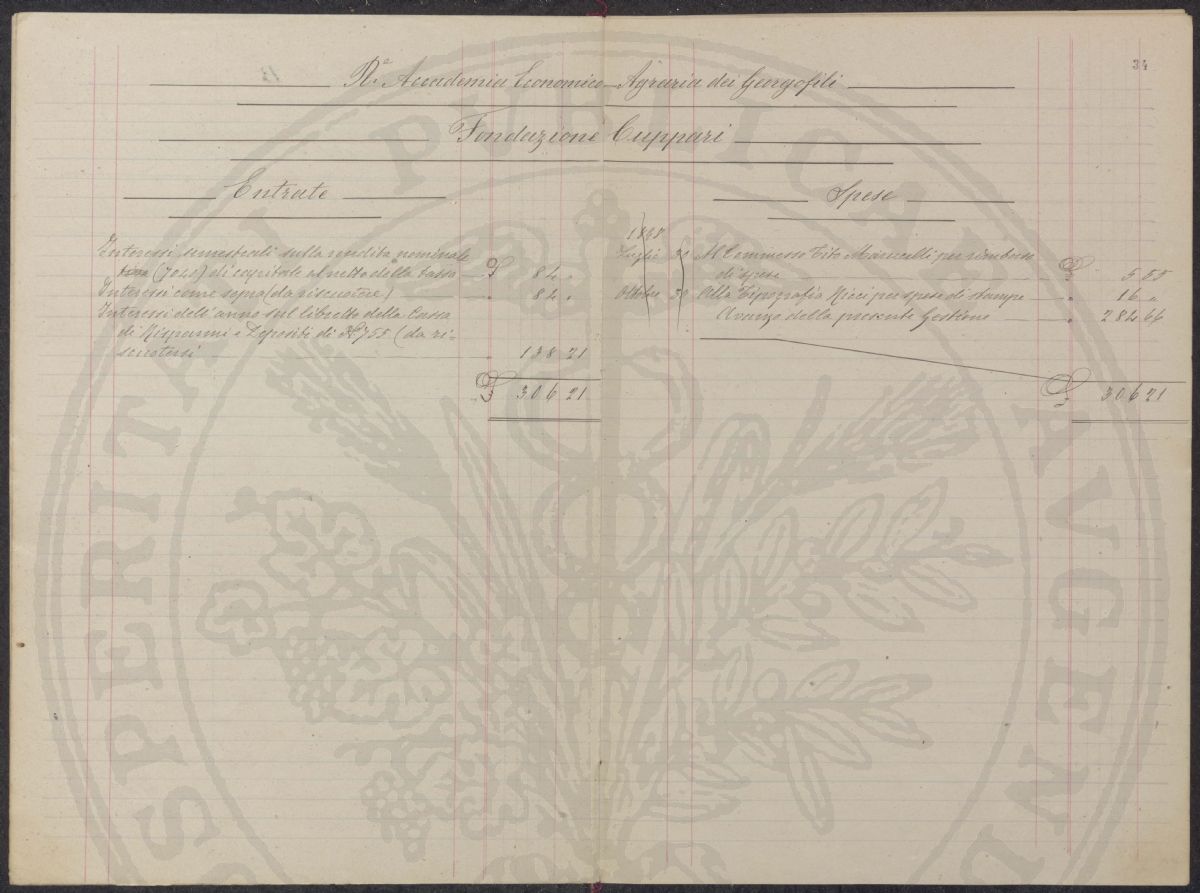 34
R.ª Accademia Economico-Agraria dei Georgofili
Fondazione Cuppari
Entrate
Interessi semestrali sulla rendita nominale
(7040) di capitale al netto della tassa £ 84 "
Interessi come sopra (da riscuotere) " 84 "
Interessi dell'anno sul libretto della Cassa
di Risparmi e Depositi di N° 755 (da ri-
scuotersi " 138 21
£ 306 21
Spese
Luglio 31 Al Commesso Tito Marucelli per rimborso
di spese £ 5 55
Ottobre 30 Alla Tipografia Ricci per spese di stampe " 16 "
Avanzo della presente Gestione " 284 66
£ 306 21
PROSPERITATI PVBLICAE AVGENDAE